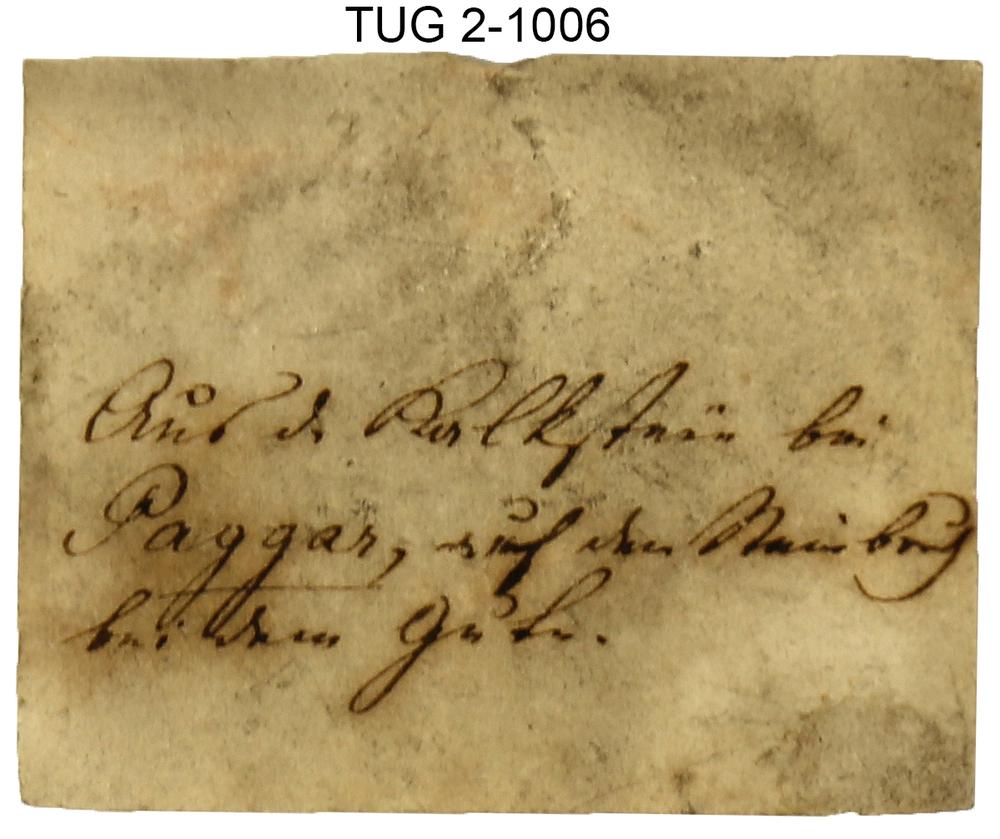 TUG 2-1006
Aus d. Kalkstein bei
Paggar, auf den Steinbruch
bei dem Gute.